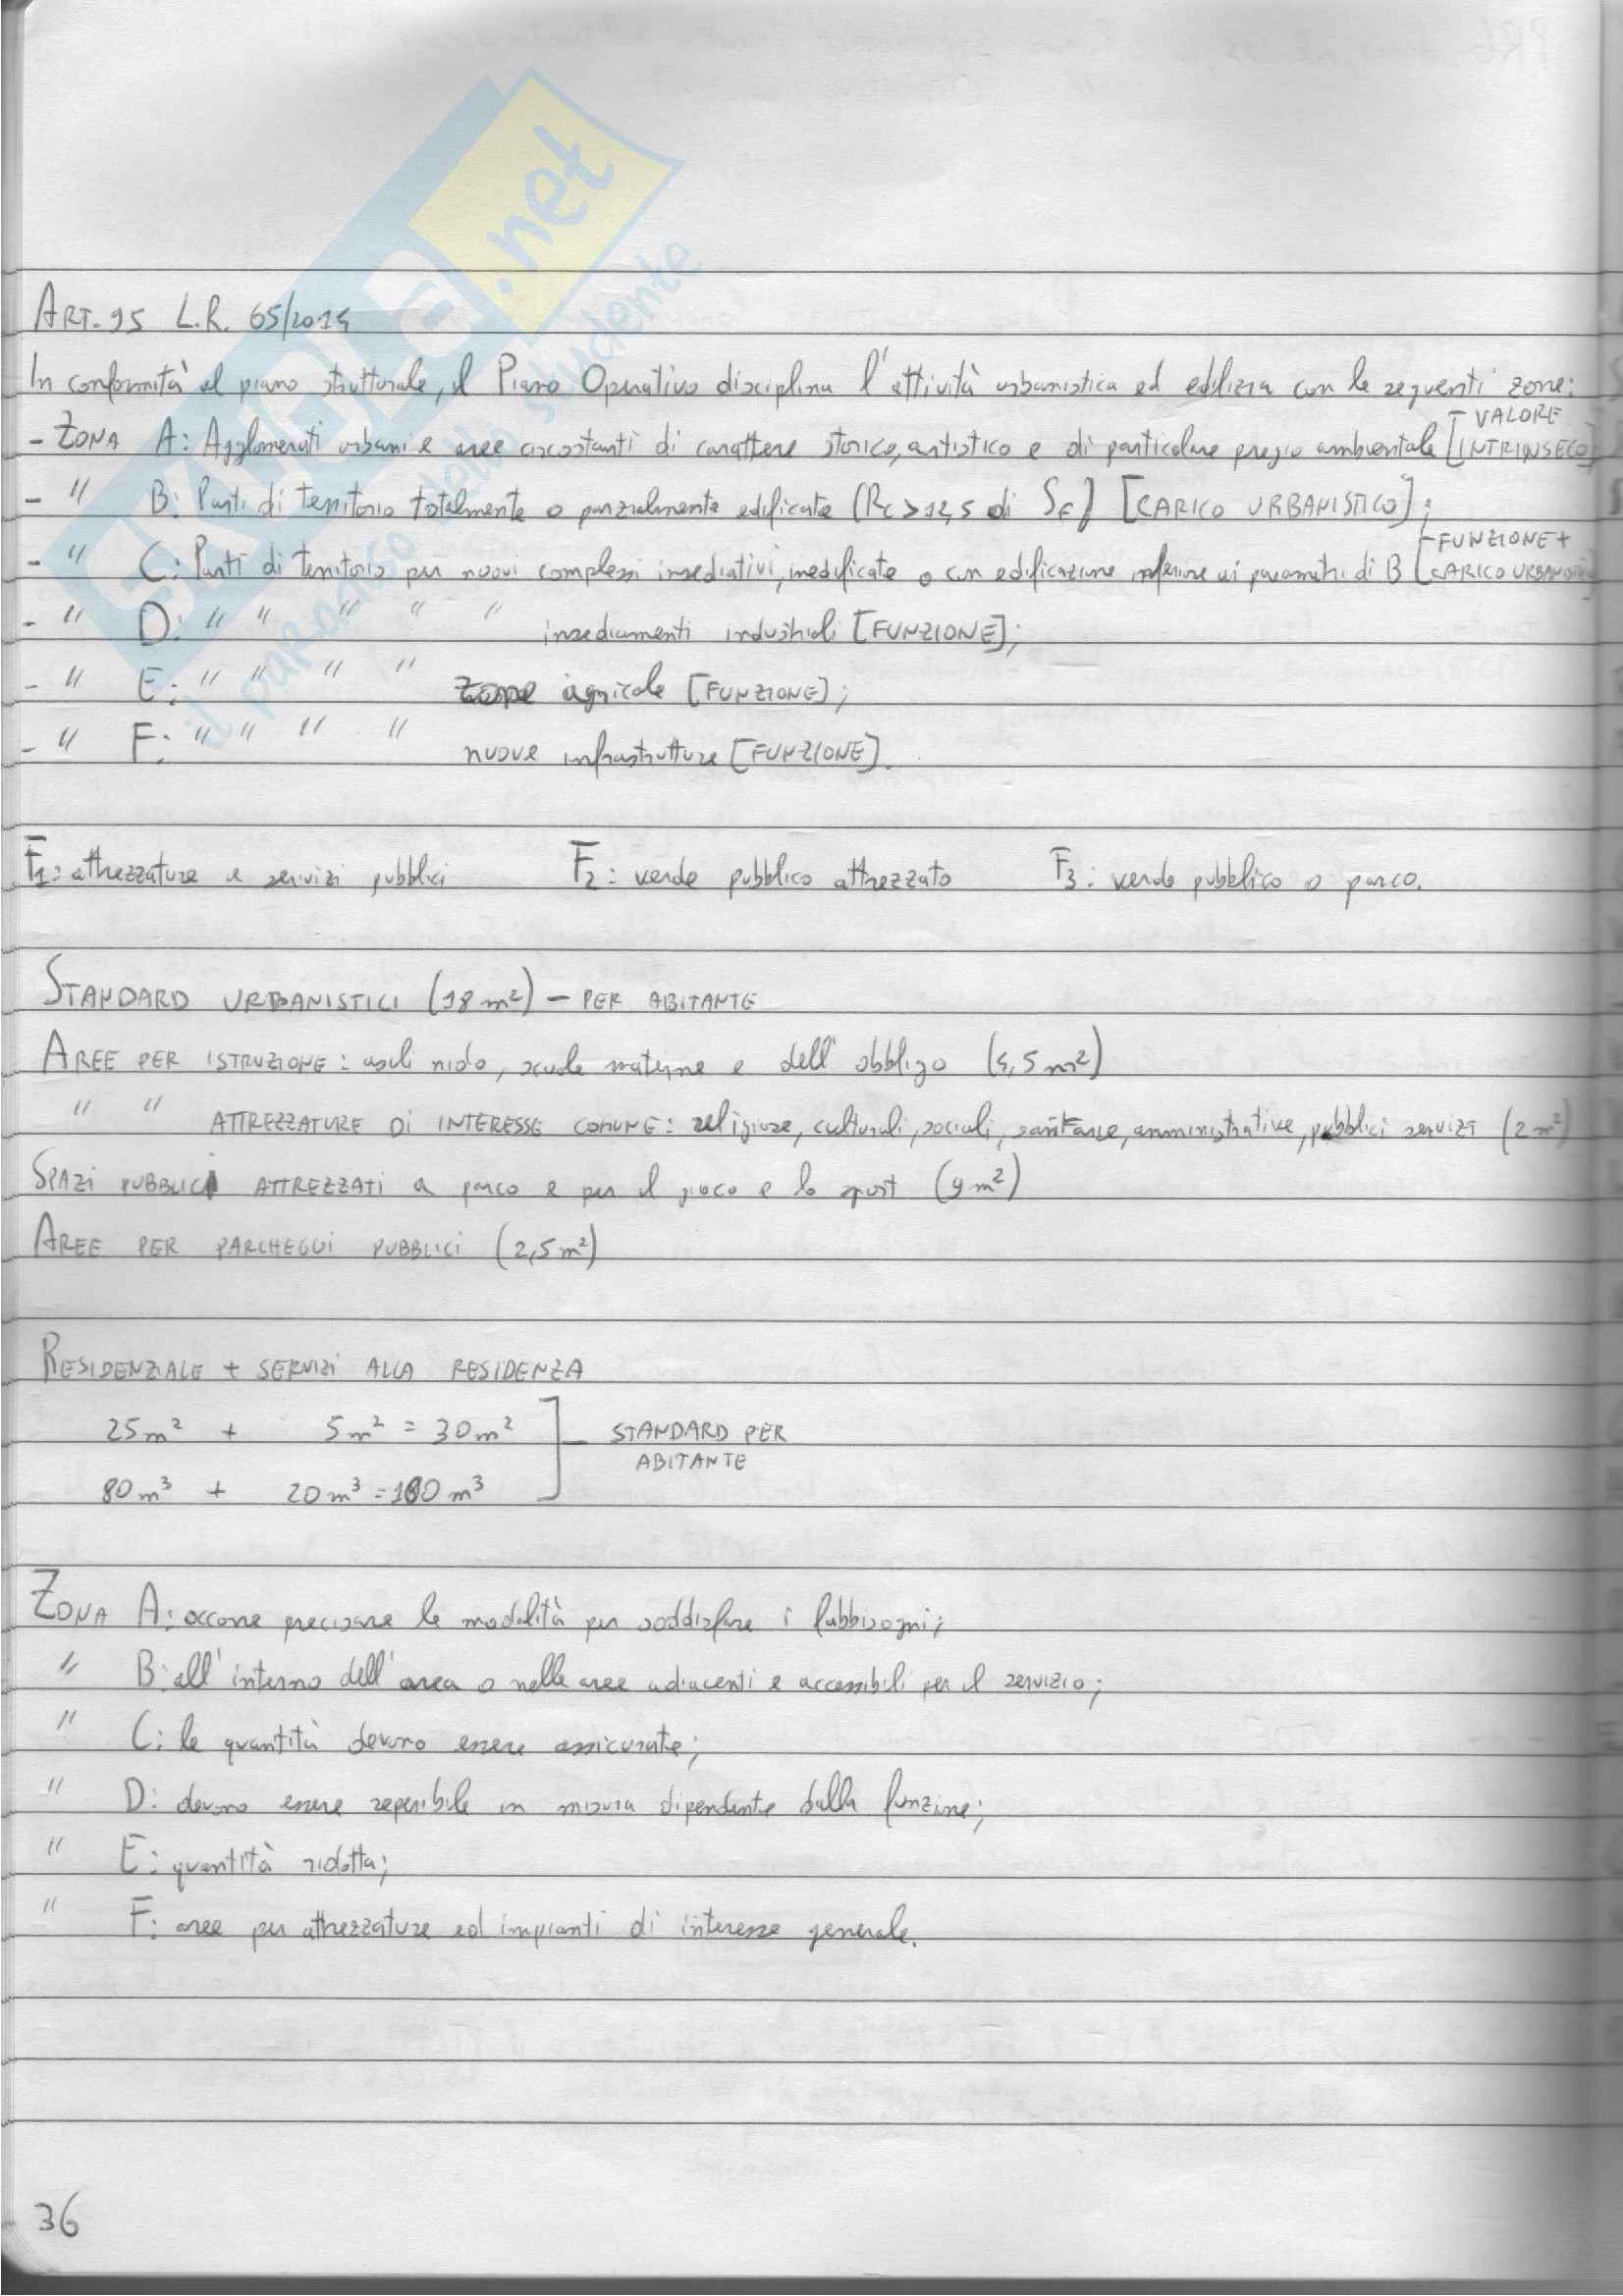 ART. 95 L.R. 65/2014
In conformità al piano strutturale, il Piano Operativo disciplina l'attività urbanistica ed edilizia con le seguenti zone:
- ZONA A: Agglomerati urbani e aree circostanti di carattere storico, artistico e di particolare pregio ambientale [VALORE INTRINSECO]
- " B: Parti di territorio totalmente o parzialmente edificate (Rc > 12,5 di SF) [CARICO URBANISTICO];
- " C: Parti di territorio per nuovi complessi insediativi, inedificate o con edificazione inferiore ai parametri di B [FUNZIONE + CARICO URBANISTICO]
- " D: " " " " " insediamenti industriali [FUNZIONE];
- " E: " " " " zone agricole [FUNZIONE];
- " F: " " " " nuove infrastrutture [FUNZIONE].
F1: attrezzature e servizi pubblici F2: verde pubblico attrezzato F3: verde pubblico o parco.
STANDARD URBANISTICI (18 m²) – PER ABITANTE
AREE PER ISTRUZIONE: asili nido, scuole materne e dell'obbligo (4,5 m²)
" " ATTREZZATURE DI INTERESSE COMUNE: religiose, culturali, sociali, sanitarie, amministrative, pubblici servizi (2 m²)
SPAZI PUBBLICI ATTREZZATI a parco e per il gioco e lo sport (9 m²)
AREE PER PARCHEGGI PUBBLICI (2,5 m²)
RESIDENZIALE + SERVIZI ALLA RESIDENZA
25 m² + 5 m² = 30 m²
STANDARD PER ABITANTE
80 m³ + 20 m³ = 100 m³
ZONA A: occorre precisare le modalità per soddisfare i fabbisogni;
" B: all'interno dell'area o nelle aree adiacenti e accessibili per il servizio;
" C: le quantità devono essere assicurate;
" D: devono essere reperibile in misura dipendente dalla funzine;
" E: quantità ridotta;
" F: aree per attrezzature ed impianti di interesse generale.
36
SKUOLA.net
il paradiso dello studente